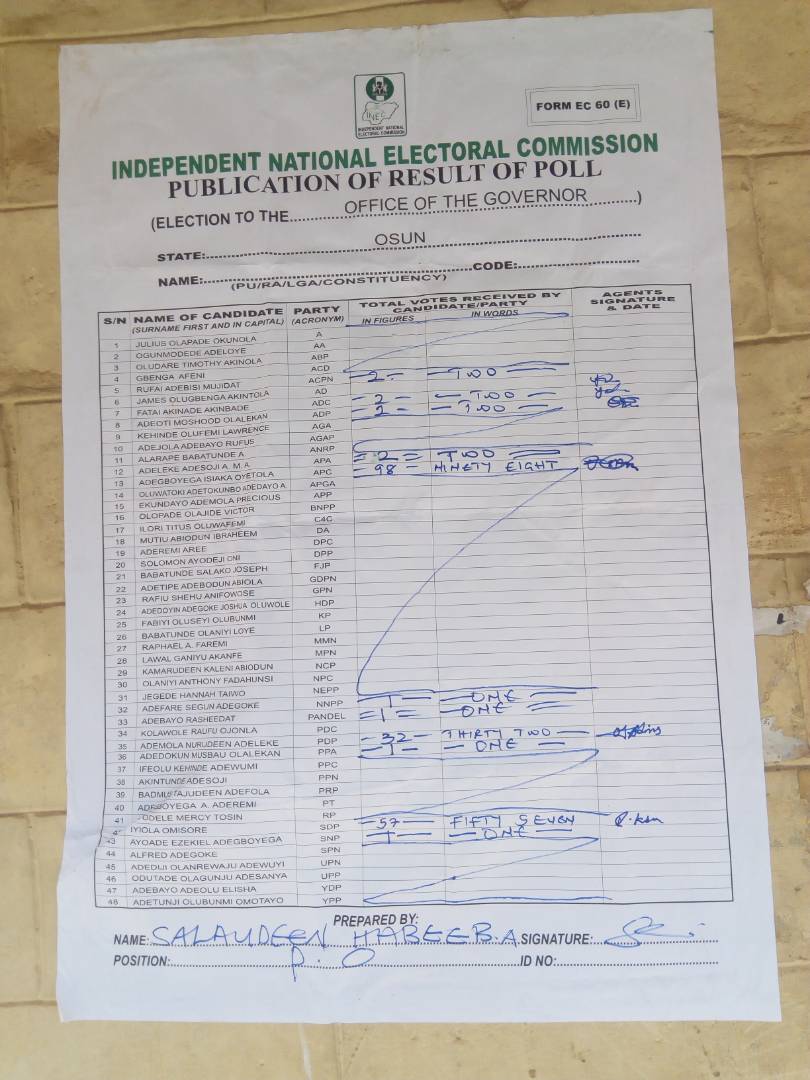 INEC
INDEPENDENT NATIONAL ELECTORAL COMMISSION
FORM EC 60 (E)
INDEPENDENT NATIONAL ELECTORAL COMMISSION
PUBLICATION OF RESULT OF POLL
(ELECTION TO THE OFFICE OF THE GOVERNOR)
STATE: OSUN
NAME: CODE:
(PU/RA/LGA/CONSTITUENCY)
S/N NAME OF CANDIDATE (SURNAME FIRST AND IN CAPITAL) PARTY (ACRONYM) TOTAL VOTES RECEIVED BY CANDIDATE/PARTY IN FIGURES IN WORDS AGENTS SIGNATURE & DATE
1 JULIUS OLAPADE OKUNOLA A
2 OGUNMODEDE ADELOYE AA
3 OLUDARE TIMOTHY AKINOLA ABP
4 GBENGA AFENI ACD
5 RUFAI ADEBISI MUJIDAT ACPN =2= TWO
6 JAMES OLUGBENGA AKINTOLA AD
7 FATAI AKINADE AKINBADE ADC -2- TWO
8 ADEOTI MOSHOOD OLALEKAN ADP =2= TWO
9 KEHINDE OLUFEMI LAWRENCE AGA
10 ADEJOLA ADEBAYO RUFUS AGAP
11 ALARAPE BABATUNDE A. ANRP
12 ADELEKE ADESOJI A. M. A. APA =2= TWO
13 ADEGBOYEGA ISIAKA OYETOLA APC =98= NINETY EIGHT
14 OLUWATOKI ADETOKUNBO ADEDAYO A. APGA
15 EKUNDAYO ADEMOLA PRECIOUS APP
16 OLOPADE OLAJIDE VICTOR BNPP
17 ILORI TITUS OLUWAFEMI C4C
18 MUTIU ABIODUN IBRAHEEM DA
19 ADEREMI AREE DPC
20 SOLOMON AYODEJI ONI DPP
21 BABATUNDE SALAKO JOSEPH FJP
22 ADETIPE ADEBODUN ABIOLA GDPN
23 RAFIU SHEHU ANIFOWOSE GPN
24 ADEDOYIN ADEGOKE JOSHUA OLUWOLE HDP
25 FABIYI OLUSEYI OLUBUNMI KP
26 BABATUNDE OLANIYI LOYE LP
27 RAPHAEL A. FAREMI MMN
28 LAWAL GANIYU AKANFE MPN
29 KAMARUDEEN KALENI ABIODUN NCP
30 OLANIYI ANTHONY FADAHUNSI NPC
31 JEGEDE HANNAH TAIWO NEPP
32 ADEFARE SEGUN ADEGOKE NNPP =1= ONE
33 ADEBAYO RASHEEDAT PANDEL =1= ONE
34 KOLAWOLE RAUFU OJONLA PDC
35 ADEMOLA NURUDEEN ADELEKE PDP =32= THIRTY TWO
36 ADEDOKUN MUSBAU OLALEKAN PPA =1= ONE
37 IFEOLU KEHINDE ADEWUMI PPC
38 AKINTUNDE ADESOJI PPN
39 BADMUS TAJUDEEN ADEFOLA PRP
40 ADEGBOYEGA A. ADEREMI PT
41 FODELE MERCY TOSIN RP
42 IYIOLA OMISORE SDP =57= FIFTY SEVEN
43 AYOADE EZEKIEL ADEGBOYEGA SNP =1= ONE
44 ALFRED ADEGOKE SPN
45 ADEDIJI OLANREWAJU ADEWUYI UPN
46 ODUTADE OLAGUNJU ADESANYA UPP
47 ADEBAYO ADEOLU ELISHA YDP
48 ADETUNJI OLUBUNMI OMOTAYO YPP
PREPARED BY:
NAME: SALAUDEEN HABEEB.A SIGNATURE:
POSITION: P.O ID NO: